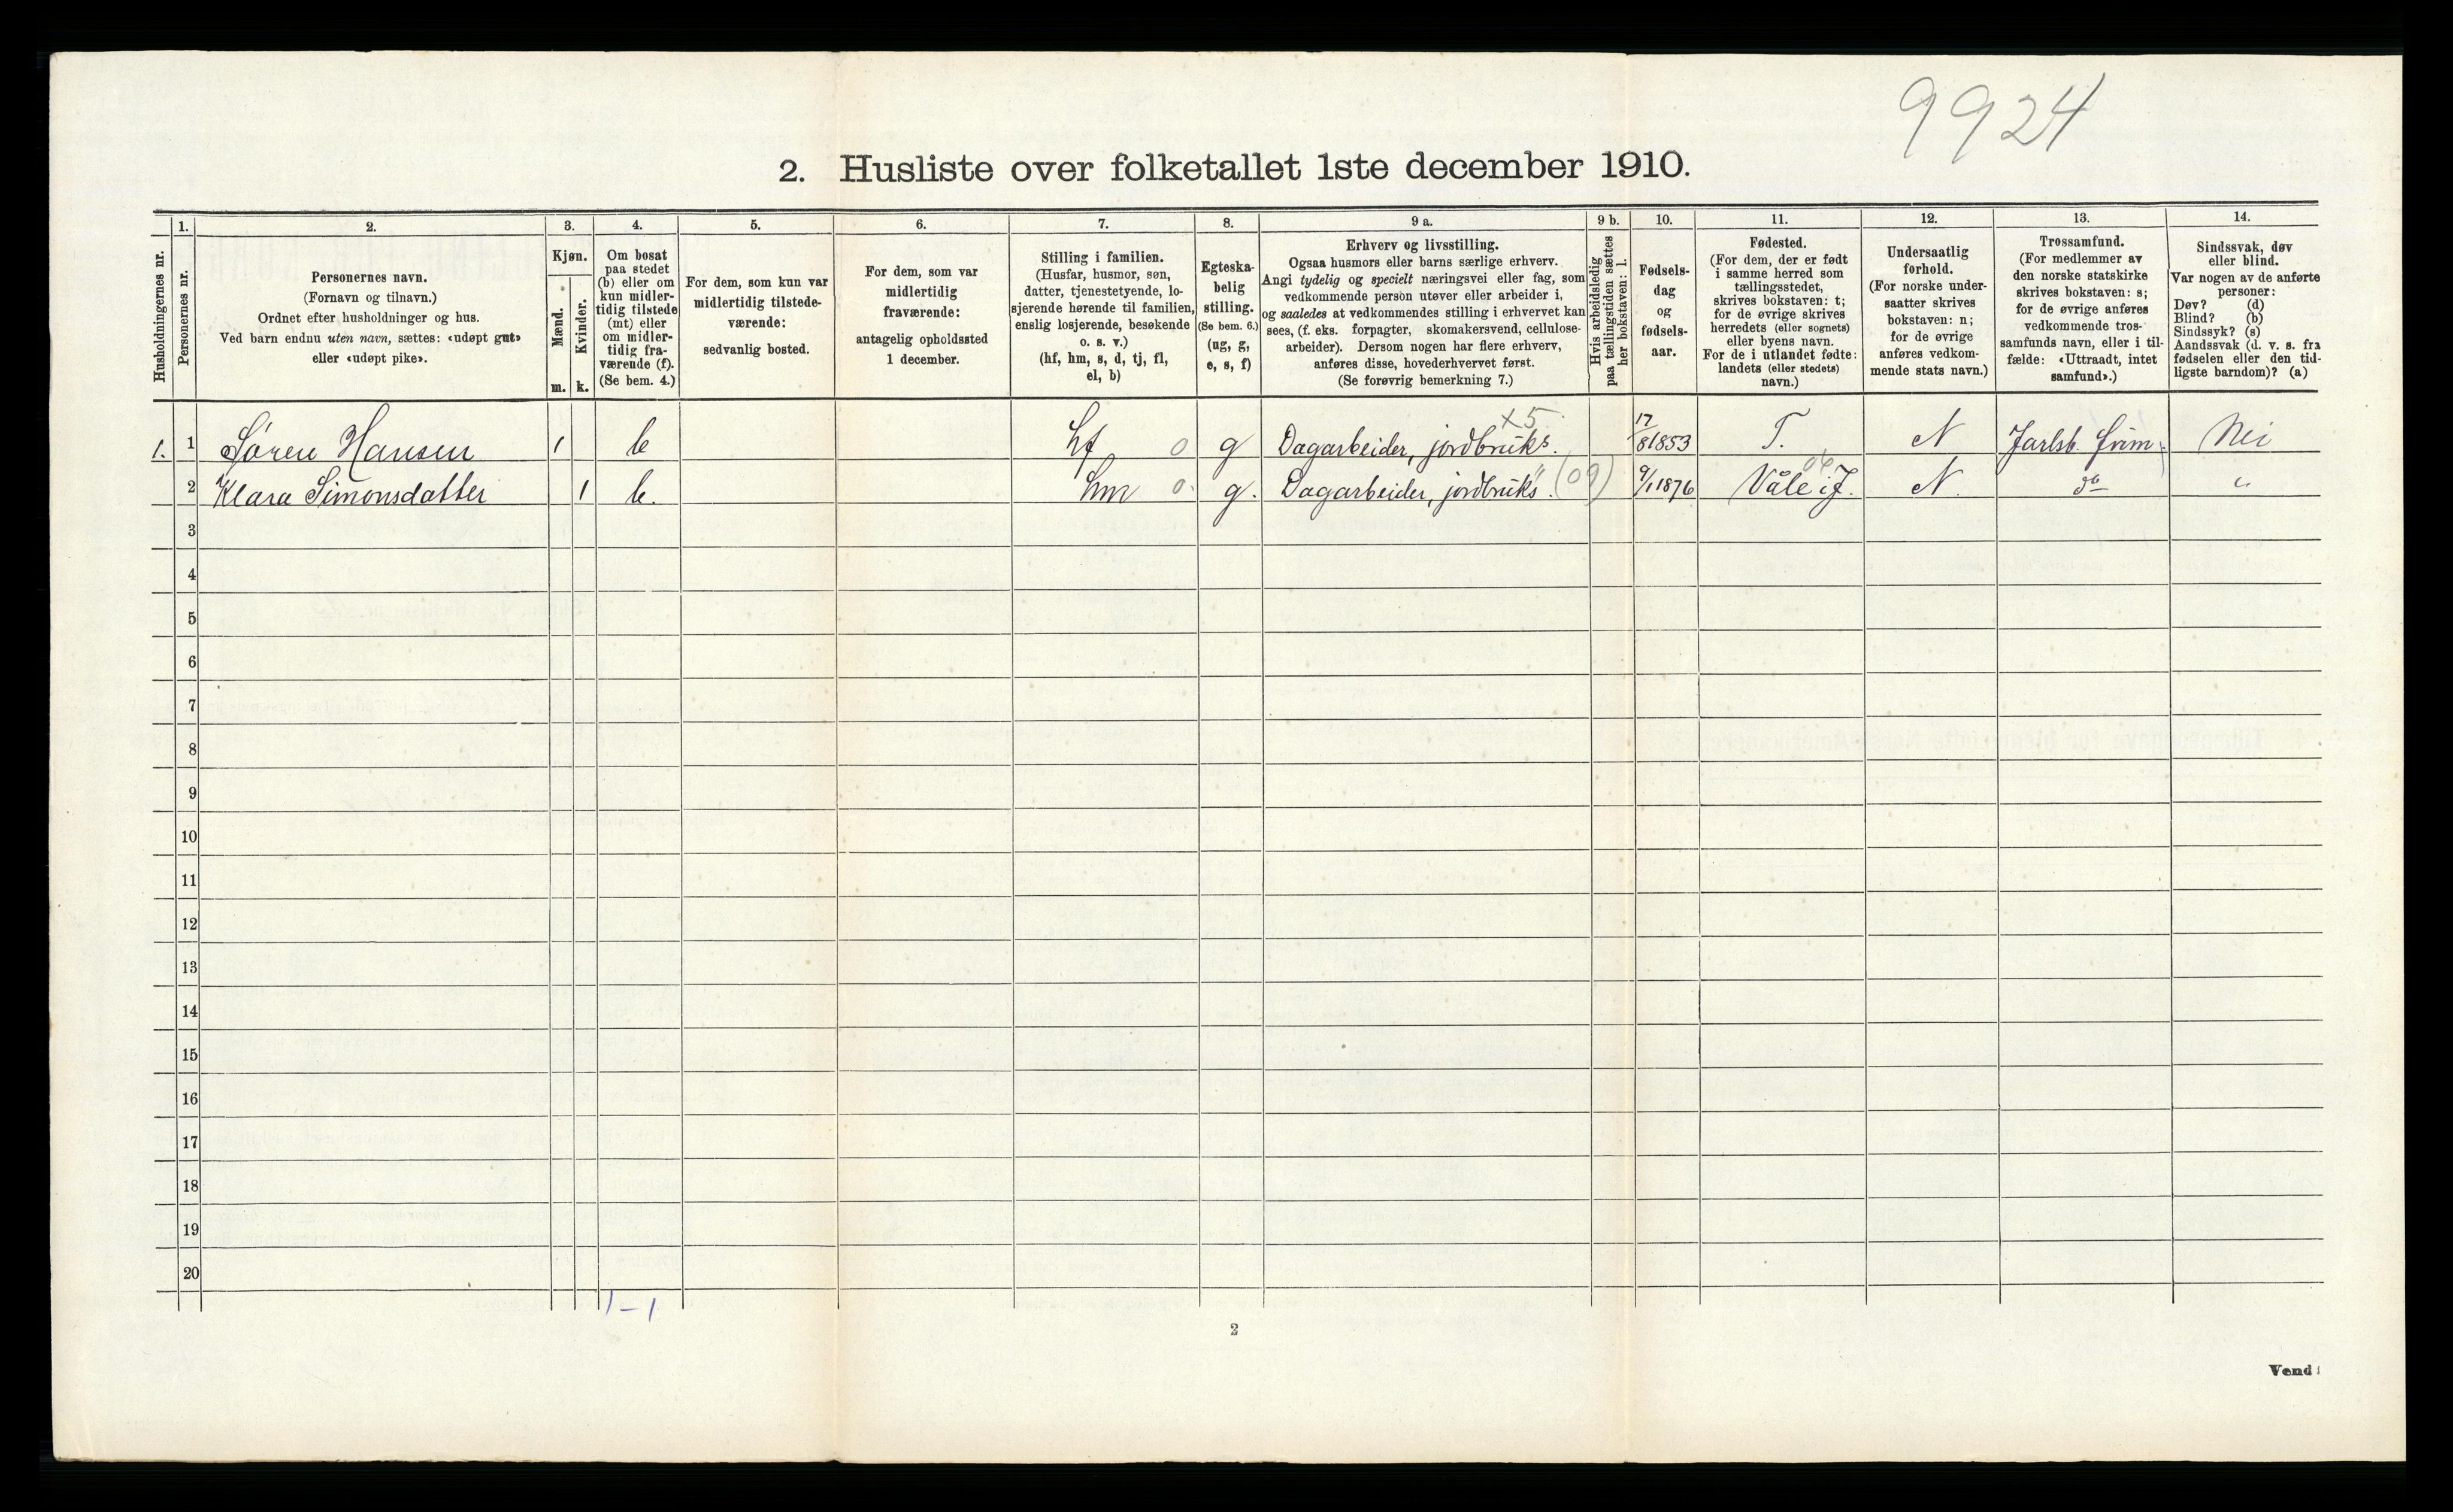 9924
2. Husliste over folketallet 1ste december 1910.
Husholdningernes nr.
1.
Personernes nr.
2.
Personernes navn.
(Fornavn og tilnavn.)
Ordnet efter husholdninger og hus.
Ved barn endnu uten navn, sættes: «udøpt gut»
eller «udøpt pike».
3.
Kjøn.
Mænd.
m.
Kvinder.
k.
4.
Om bosat
paa stedet
(b) eller om
kun midler-
tidig tilstede
(mt) eller
om midler-
tidig fra-
værende (f).
(Se bem. 4.)
5.
For dem, som kun var
midlertidig tilstede-
værende:
sedvanlig bosted.
6.
For dem, som var
midlertidig
fraværende:
antagelig opholdssted
1 december.
7.
Stilling i familien.
(Husfar, husmor, søn,
datter, tjenestetyende, lo-
sjerende hørende til familien,
enslig losjerende, besøkende
o. s. v.)
(hf, hm, s, d, tj, fl,
el, b)
8.
Egteska-
belig
stilling.
(Se bem. 6.)
(ug, g,
e, s, f)
9 a.
Erhverv og livsstilling.
Ogsaa husmors eller barns særlige erhverv.
Angi tydelig og specielt næringsvei eller fag, som
vedkommende person utøver eller arbeider i,
og saaledes at vedkommendes stilling i erhvervet kan
sees, (f. eks. forpagter, skomakersvend, cellulose-
arbeider). Dersom nogen har flere erhverv,
anføres disse, hovederhvervet først.
(Se forøvrig bemerkning 7.)
9 b.
Hvis arbeidsledig
paa tællingstiden sættes
her bokstaven: l.
10.
Fødsels-
dag
og
fødsels-
aar.
11.
Fødested.
(For dem, der er født
i samme herred som
tællingsstedet,
skrives bokstaven: t;
for de øvrige skrives
herredets (eller sognets)
eller byens navn.
For de i utlandet fødte:
landets (eller stedets)
navn.)
12.
Undersaatlig
forhold.
(For norske under-
saatter skrives
bokstaven: n;
for de øvrige
anføres vedkom-
mende stats navn.)
13.
Trossamfund.
(For medlemmer av
den norske statskirke
skrives bokstaven: s;
for de øvrige anføres
vedkommende tros-
samfunds navn, eller i til-
fælde: «Uttraadt, intet
samfund».)
14.
Sindssvak, døv
eller blind.
Var nogen av de anførte
personer:
Døv? (d)
Blind? (b)
Sindssyk? (s)
Aandssvak (d. v. s. fra
fødselen eller den tid-
ligste barndom)? (a)
1. 1 Søren Hansen 1 b hf 0 g Dagarbeider, jordbruks. x5 17/8 1853 T. N Jarlsb. frim. Nei
2 Klara Simonsdatter 1 b. hm 0 g. Dagarbeider, jordbruks". (09) 9/1 1876 Våle i J. 06 N. do "
3
4
5
6
7
8
9
10
11
12
13
14
15
16
17
18
19
20
1 – 1
2
Vend